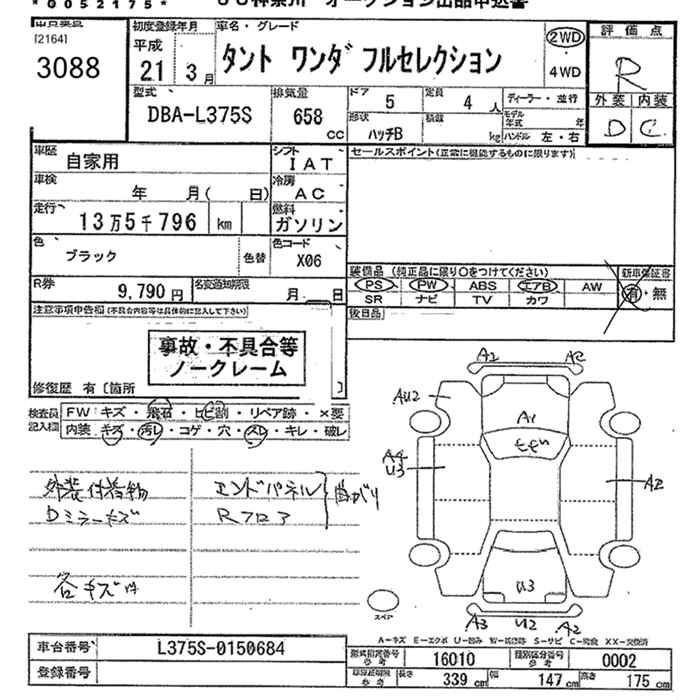 *0052175*
オークション出品申込書
[2164]
3088
初度登録年月
平成
21 3月
車名・グレード
タント ワンダフルセレクション
2WD
4WD
評価点
R
外装 内装
D C
型式
DBA-L375S
排気量
658
cc
ドア
5
定員
4人
ディーラー・並行
形状
ハッチB
積載
kg
モデル年式
年
ハンドル 左・右
車歴
自家用
シフト
IAT
セールスポイント(正常に機能するものに限ります)
車検
年 月( 日)
冷房
AC
走行
13万5千796 km
燃料
ガソリン
色
ブラック
色替
色コード
X06
装備品 (純正品に限り〇をつけてください)
新車保証書
有・無
PS PW ABS エアB AW
SR ナビ TV カワ
R券
9,790円
名変通知期限
月 日
後日品
注意事項申告欄(不具合内容等は具体的に記入して下さい)
事故・不具合等
ノークレーム
修復歴 有〔箇所 〕
検査員
記入欄
FW キズ・飛石・ヒビ割・リペア跡・×要
内装 キズ・汚レ・コゲ・穴・スレ・キレ・破レ
外装付着物
Dミラーキズ
各キズ
エンドパネル
Rフロア
曲がり
A2 A2
AU2
A1
A4
U3
A2
U3
A3 U2 A2
スペア
A-キズ E-エクボ U-凹み W-波修跡 S-サビ C-腐食 XX-交換済
車台番号
L375S-0150684
登録番号
型式指定番号
参考
16010
類別区分番号
参考
0002
参考
長さ 339 cm
幅 147 cm
高さ 175 cm